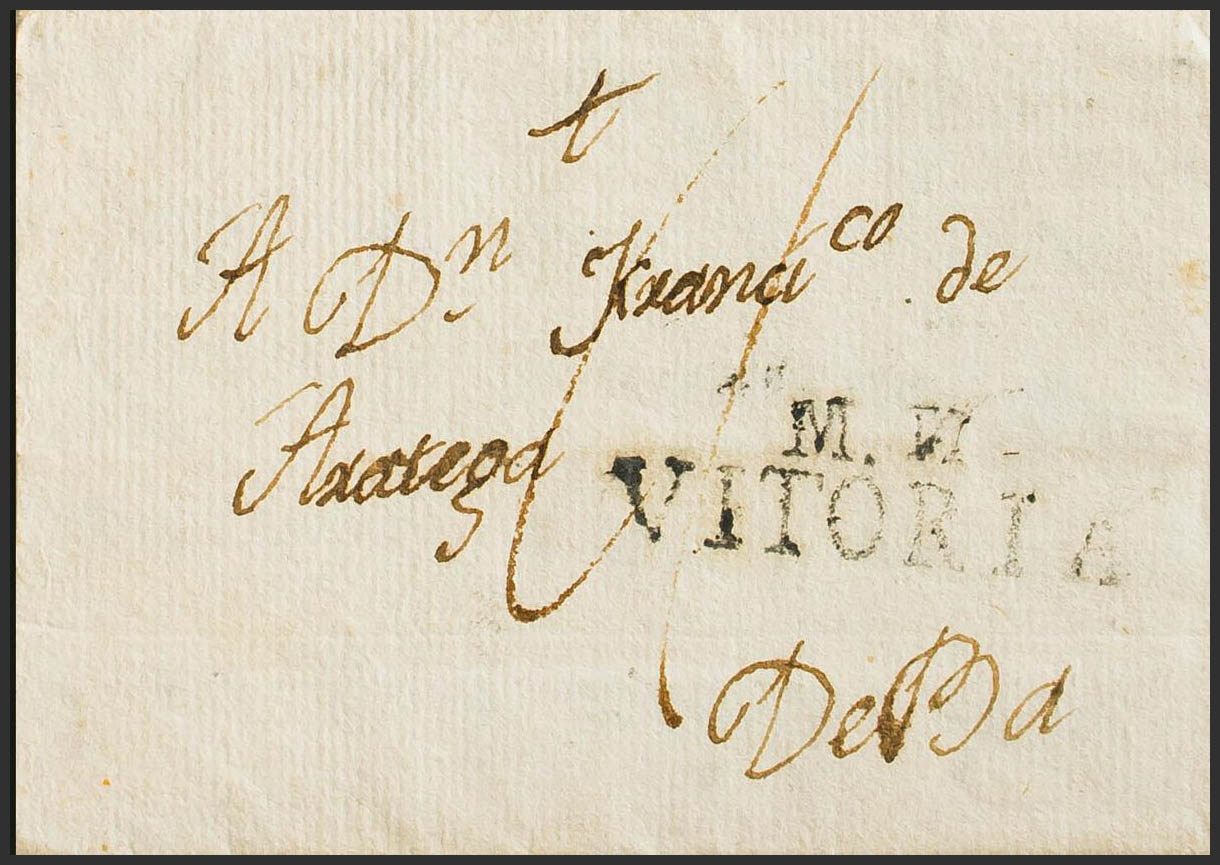 t
A Dn Francco de
Aratega
M. N.
VITORIA
DeBa